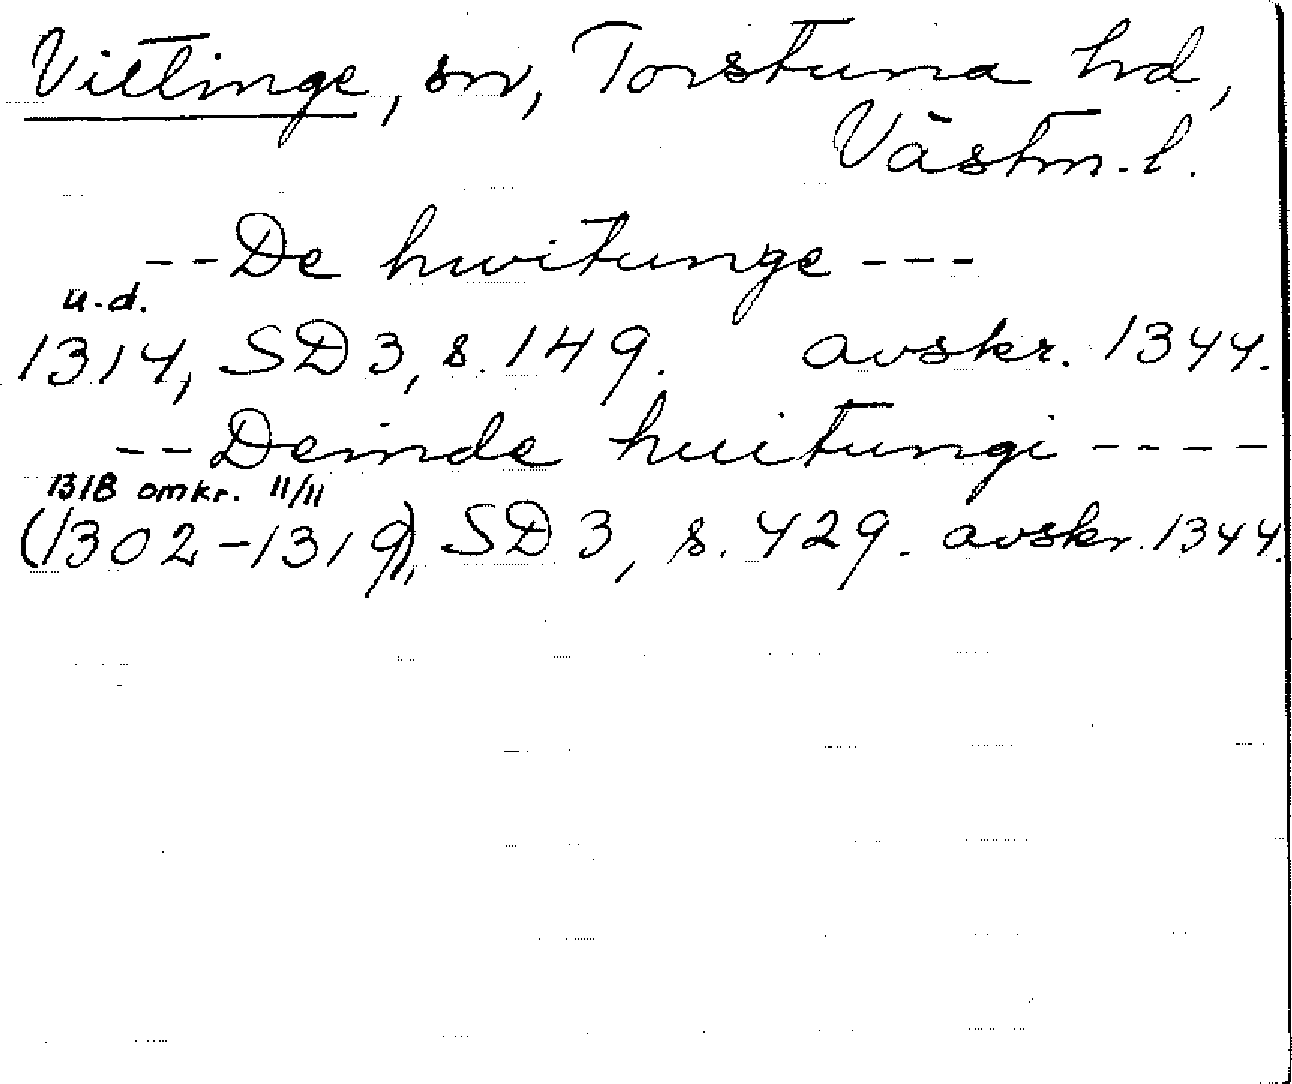 Vittinge, sn, Torstuna hd,
Västm. l.
-- De hwitunge ---
u.d.
1314, SD 3, s. 149. avskr. 1344.
-- Deinde huitungi ----
1318 omkr. 11/11
(1302-1319), SD 3, s. 429. avskr. 1344.